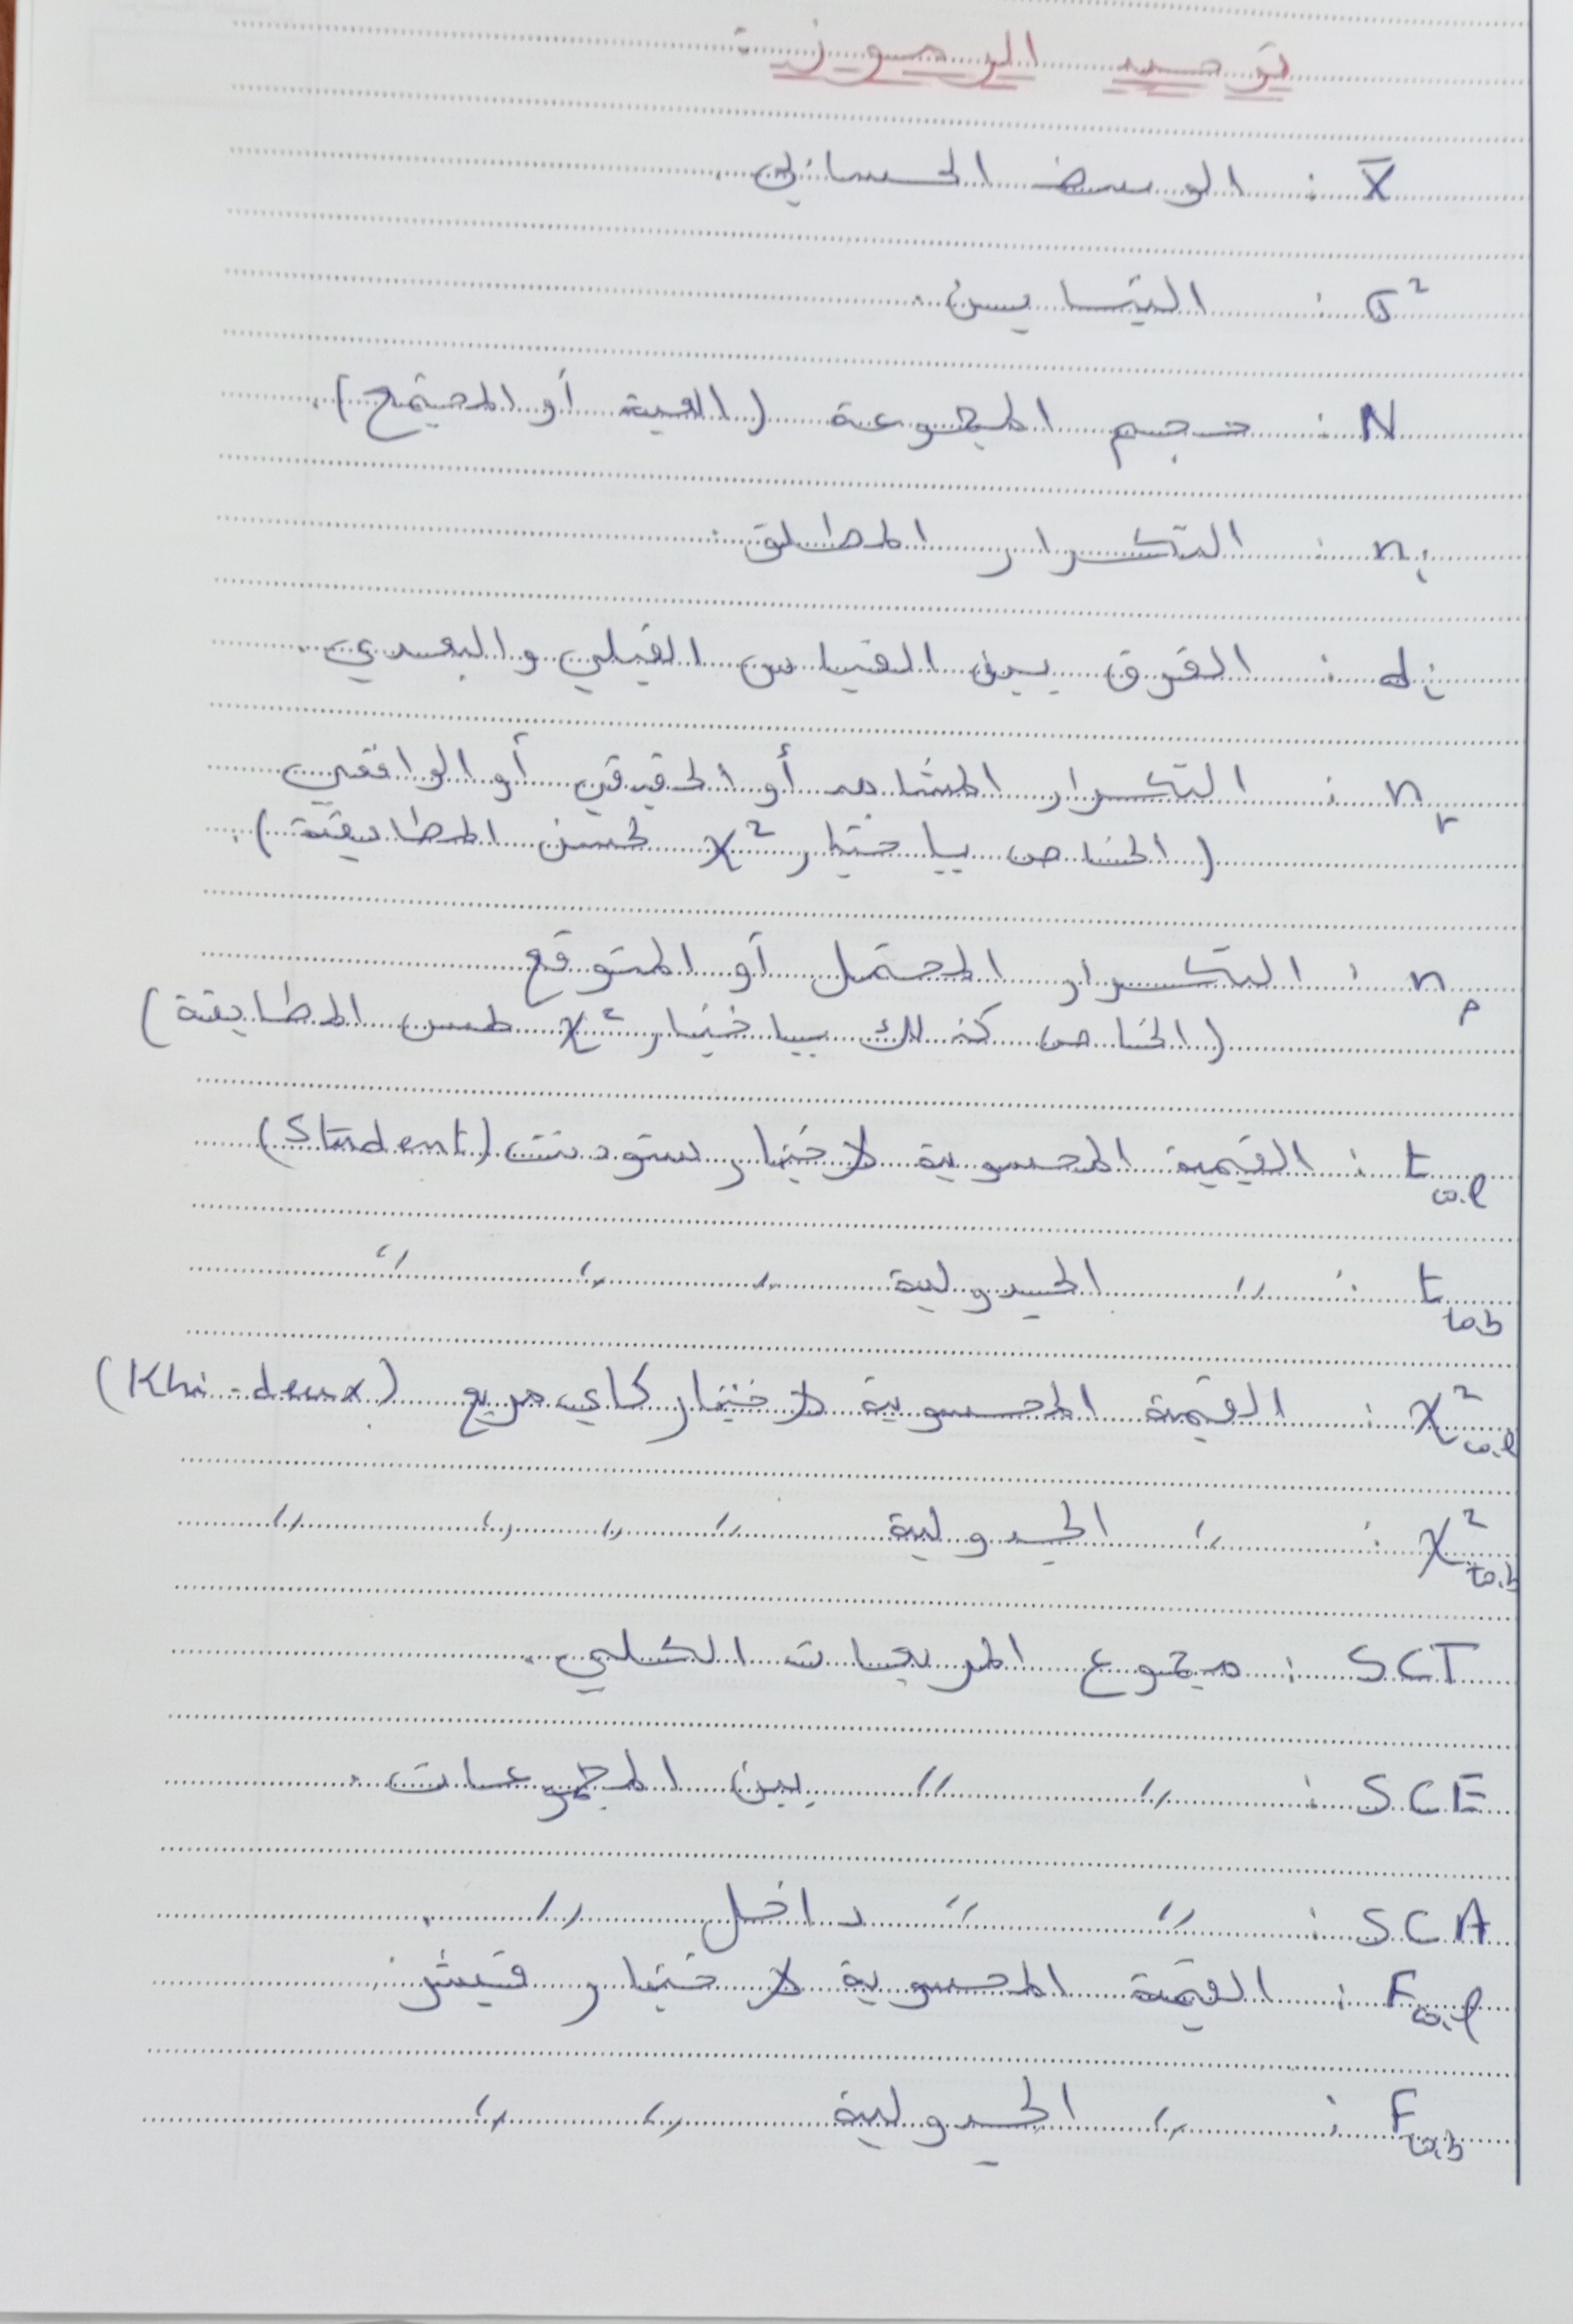 توحيد الرموز:
X̄ : الوسط الحسابي.
σ² : التباين.
N : حجم المجموعة (العينة أو المجتمع).
nᵢ : التكرار المطلق.
dᵢ : الفرق بين القياس القبلي والبعدي.
n_r : التكرار المشاهد أو الحقيقي أو الواقعي
(الخاص باختبار χ² لحسن المطابقة).
n_p : التكرار المحتمل أو المتوقع
(الخاص كذلك باختبار χ² لحسن المطابقة)
t_cal : القيمة المحسوبة لاختبار ستودنت (Student)
t_tab : " الجدولية " " "
χ²_cal : القيمة المحسوبة لاختبار كاي مربع (Khi-deux)
χ²_tab : " الجدولية " " " "
SCT : مجموع المربعات الكلي.
SCE : " " بين المجموعات.
SCA : " " داخل " .
F_cal : القيمة المحسوبة لاختبار فيشر.
F_tab : " الجدولية " "